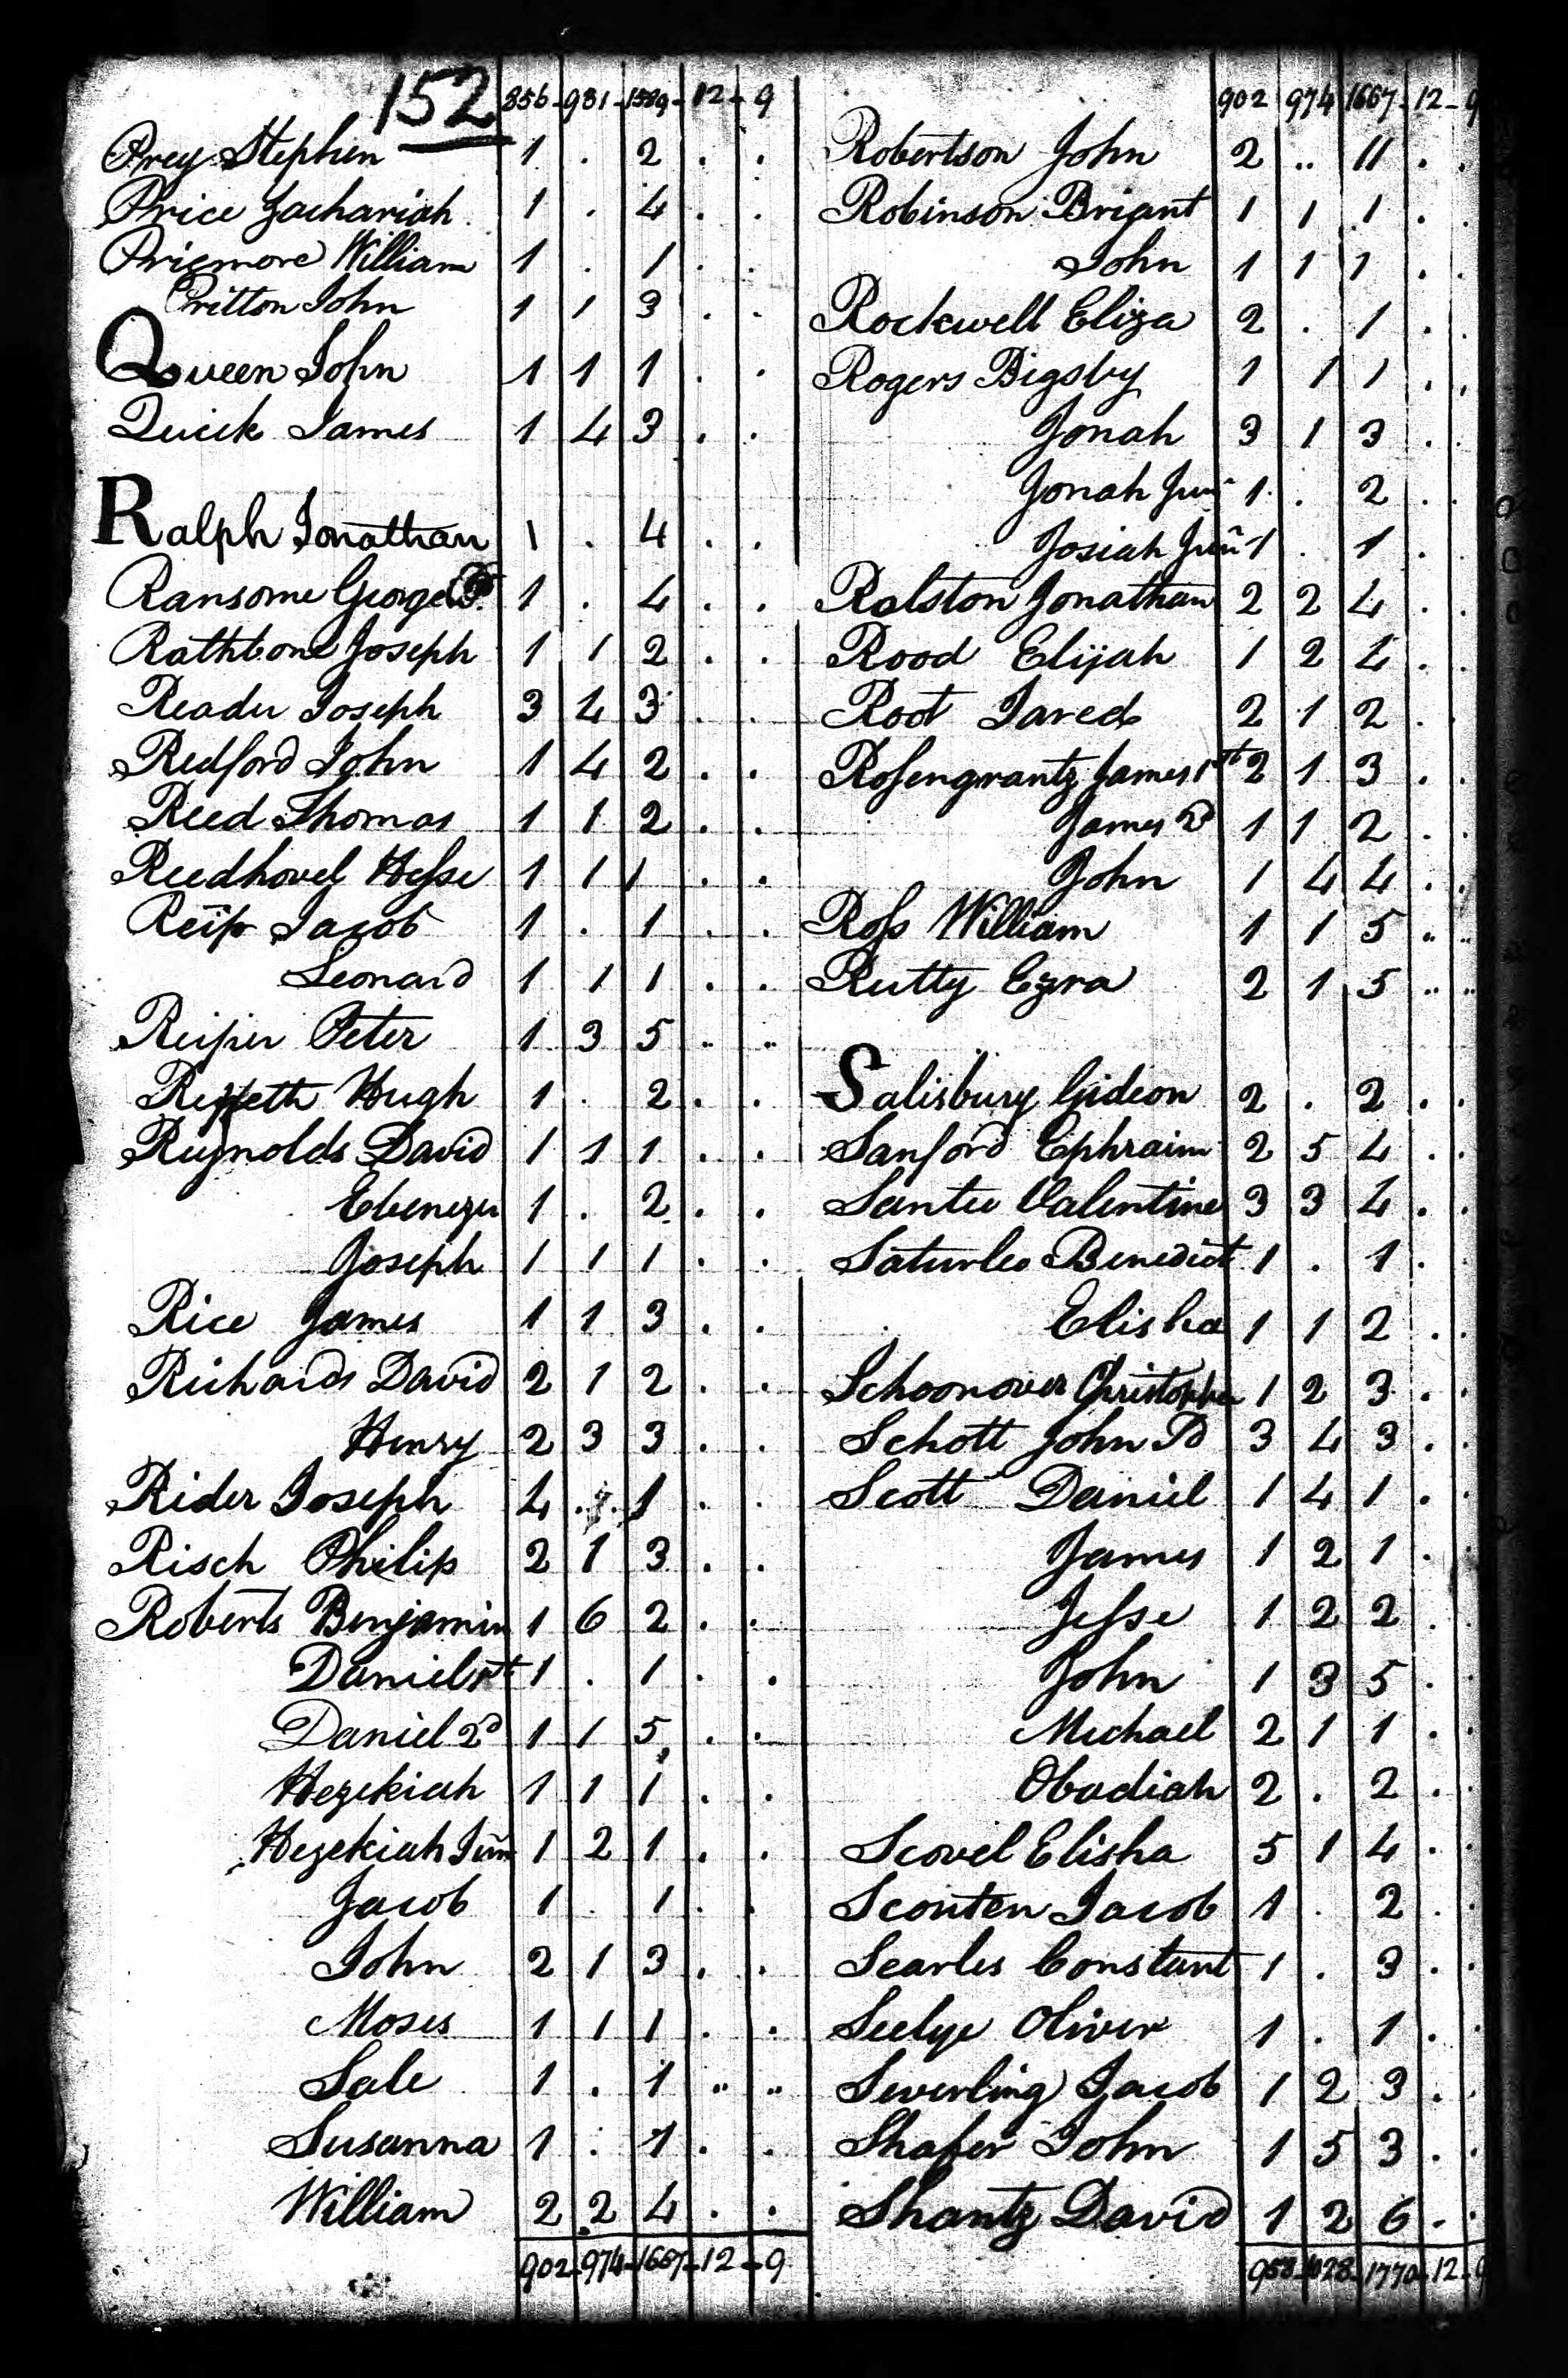 152
856 - 931 - 1589 - 12 - 9
Prey Stephen 1 . 2 . .
Price Zachariah 1 . 4 . .
Prigmore William 1 . 1 . .
Pritton John 1 1 3 . .
Queen John 1 1 1 . .
Quick James 1 4 3 . .
Ralph Jonathan 1 . 4 . .
Ransome George P. 1 . 4 . .
Rathbone Joseph 1 1 2 . .
Reader Joseph 3 4 3 . .
Redford John 1 4 2 . .
Reed Thomas 1 1 2 . .
Reedhovel Hesse 1 1 1 . .
Reip Jacob 1 . 1 . .
Leonard 1 1 1 . .
Reiper Peter 1 3 5 .. ..
Hugh 1 . 2 . .
Reynolds David 1 1 1 . .
Ebenezer 1 . 2 . .
Joseph 1 1 1 . .
Rice James 1 1 3 . .
Richards David 2 1 2 . .
Henry 2 3 3 . .
Rider Joseph 4 . 1 . .
Risch Philip 2 1 3 . .
Roberts Benjamin 1 6 2 . .
Daniel 1st 1 . 1 . .
Daniel 2d 1 1 5 . .
Hezekiah 1 1 1 . .
Hezekiah Jun 1 2 1 . .
Jacob 1 . 1 . .
John 2 1 3 . .
Moses 1 1 1 . .
Sale 1 . 1 .. ..
Susanna 1 . 1 . .
William 2 2 4 . .
902 - 974 - 1667 - 12 - 9
902 974 1667 - 12 - 9
Robertson John 2 .. 11 . .
Robinson Briant 1 1 1 . .
John 1 1 1 . .
Rockwell Eliza 2 . 1 . .
Rogers Bigsby 1 1 1 . .
Jonah 3 1 3 . .
Jonah Junr 1 . 2 . .
Josiah Jun 1 . 1 . .
Ralston Jonathan 2 2 4 . .
Rood Elijah 1 2 4 . .
Root Jared 2 1 2 . .
Rosengrantz James 1st 2 1 3 . .
James 2d 1 1 2 . .
John 1 4 4 . .
Ross William 1 1 5 .. ..
Rutty Ezra 2 1 5 .. ..
Salisbury Gideon 2 . 2 . .
Sanford Ephraim 2 5 4 . .
Santee Valentine 3 3 4 . .
Saturlee Benedict 1 . 1 . .
Elisha 1 1 2 . .
Schoonover Christopher 1 2 3 . .
Schott John Pd 3 4 3 . .
Scott Daniel 1 4 1 . .
James 1 2 1 . .
Jesse 1 2 2 . .
John 1 3 5 . .
Michael 2 1 1 . .
Obadiah 2 . 2 . .
Scovel Elisha 5 1 4 . .
Scouten Jacob 1 . 2 . .
Searles Constant 1 . 3 . .
Seelye Oliver 1 . 1 . .
Severling Jacob 1 2 3 . .
Shafer John 1 5 3 . .
Shantz David 1 2 6 . .
958 - 1028 - 1770 - 12 - 9